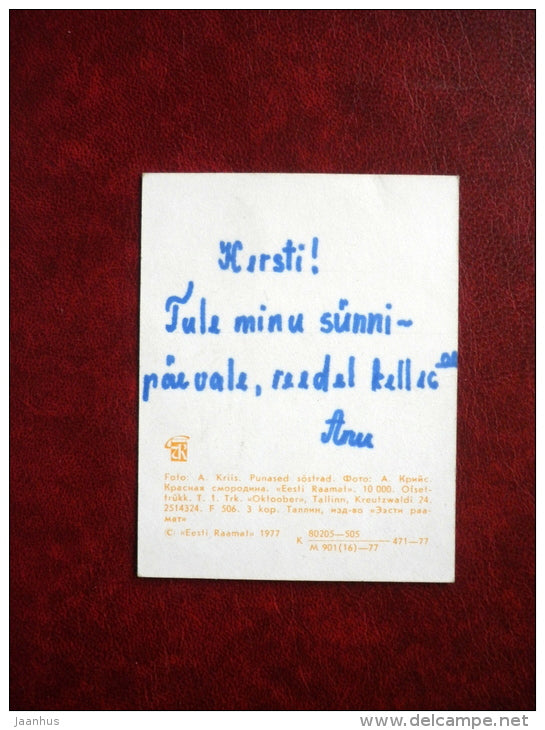 Kersti!
Tule minu sünni-
päevale, reedel kell
Anu
Foto: A. Kriis. Punased sõstrad. Фото: А. Крийс.
Красная смородина. «Eesti Raamat». 10 000. Ofset-
trükk. T. 1. Trk. «Oktoober», Tallinn, Kreutzwaldi 24.
2514324. F 506. 3 kop. Таллин, изд-во «Ээсти раа-
мат»
© «Eesti Raamat» 1977
К 80205—505 471—77
М 901(16)—77
Jaanhus
delcampe.net